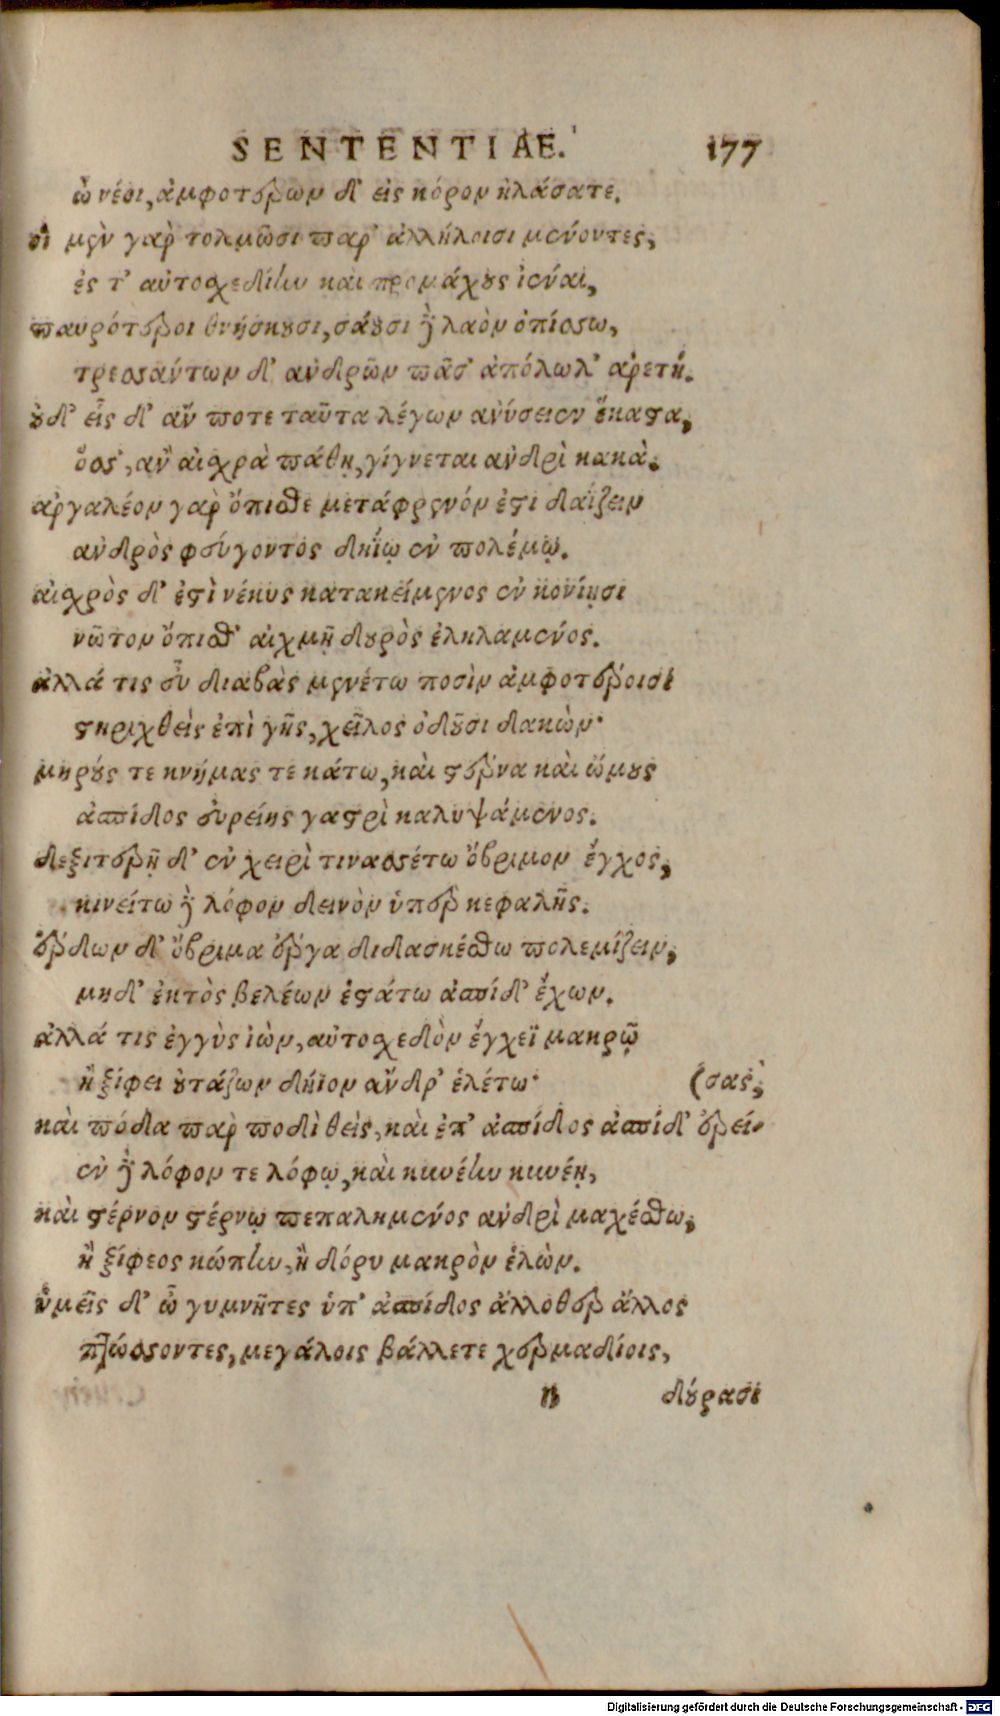 SENTENTIAE. 177
ὦ νέοι, ἀμφοτέρων δ᾽ εἰς κόρον ἠλάσατε.
οἳ μὲν γὰρ τολμῶσι παρ᾽ ἀλλήλοισι μένοντες,
ἐς τ᾽ αὐτοσχεδίην καὶ προμάχους ἰέναι,
παυρότεροι θνήσκουσι, σάουσι δὲ λαὸν ὀπίσσω,
τρεσσάντων δ᾽ ἀνδρῶν πᾶσ᾽ ἀπόλωλ᾽ ἀρετή.
οὐδ᾽ εἷς δ᾽ ἄν ποτε ταῦτα λέγων ἀνύσειεν ἕκαστα,
ὅσσ᾽, ἂν αἰσχρὰ πάθῃ, γίγνεται ἀνδρὶ κακὰ.
ἀργαλέον γὰρ ὄπισθε μετάφρενόν ἐστι δαΐζειν
ἀνδρὸς φεύγοντος δηΐῳ ἐν πολέμῳ.
αἰσχρὸς δ᾽ ἐστὶ νέκυς κατακείμενος ἐν κονίῃσι
νῶτον ὄπισθ᾽ αἰχμῇ δουρὸς ἐληλαμένος.
ἀλλά τις εὖ διαβὰς μενέτω ποσὶν ἀμφοτέροισι
στηριχθεὶς ἐπὶ γῆς, χεῖλος ὀδοῦσι δακὼν·
μηρούς τε κνήμας τε κάτω, καὶ στέρνα καὶ ὤμους
ἀσπίδος εὐρείης γαστρὶ καλυψάμενος.
δεξιτερῇ δ᾽ ἐν χειρὶ τινασσέτω ὄβριμον ἔγχος,
κινείτω δὲ λόφον δεινὸν ὑπὲρ κεφαλῆς.
ἔρδων δ᾽ ὄβριμα ἔργα διδασκέσθω πολεμίζειν,
μηδ᾽ ἐκτὸς βελέων ἑστάτω ἀσπίδ᾽ ἔχων.
ἀλλά τις ἐγγὺς ἰὼν, αὐτοσχεδὸν ἔγχεϊ μακρῷ
ἢ ξίφει οὐτάζων δήϊον ἄνδρ᾽ ἑλέτω· (σας,
καὶ πόδα παρ ποδὶ θεὶς, καὶ ἐπ᾽ ἀσπίδος ἀσπίδ᾽ ἐρεί-
ἐν δὲ λόφον τε λόφῳ, καὶ κυνέην κυνέῃ,
καὶ στέρνον στέρνῳ πεπαλημένος ἀνδρὶ μαχέσθω,
ἢ ξίφεος κώπην, ἢ δόρυ μακρὸν ἑλὼν.
ὑμεῖς δ᾽ ὦ γυμνῆτες ὑπ᾽ ἀσπίδος ἄλλοθεν ἄλλος
πτώσσοντες, μεγάλοις βάλλετε χερμαδίοις,
n δούρασι
Digitalisierung gefördert durch die Deutsche Forschungsgemeinschaft - DFG